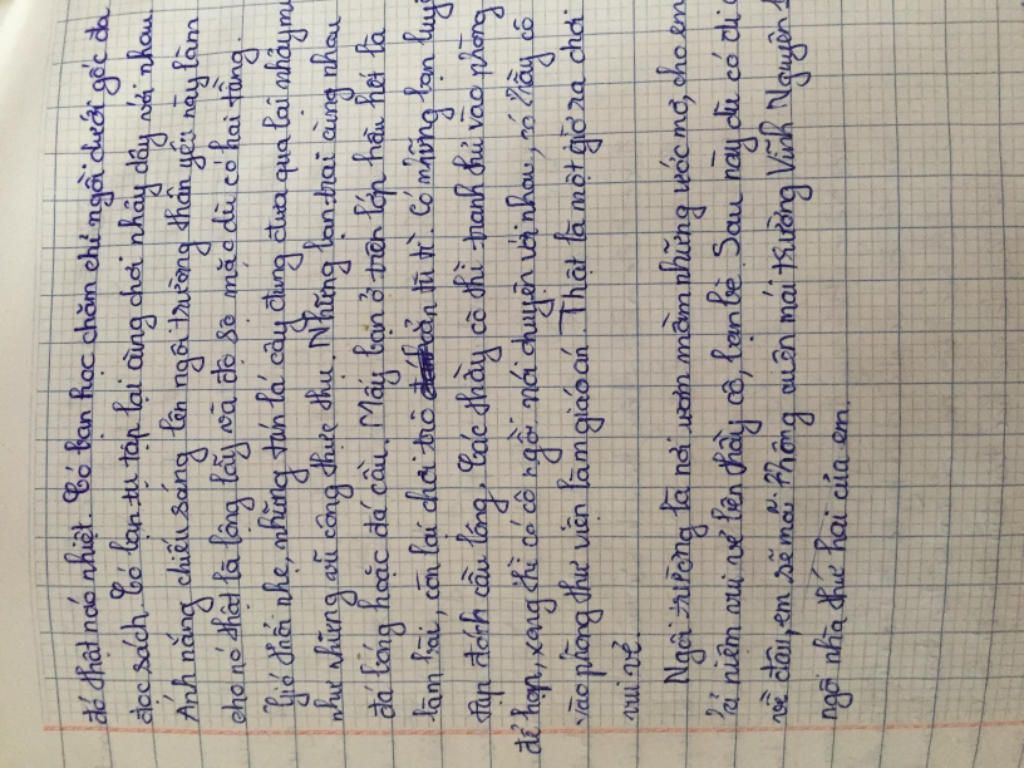 đó thật náo nhiệt. Có bạn học chăm chỉ ngồi dưới gốc đa
đọc sách. Có bạn tụ tập lại cùng chơi nhảy dây với nhau
Ánh nắng chiếu sáng lên ngôi trường thân yêu này làm
cho nó thật là lộng lẫy và đồ sộ mặc dù có hai tầng.
Gió thổi nhẹ, những tán lá cây đung đưa qua lại nhảy
như những vũ công thực thụ. Những bạn trai cùng nhau
đá bóng hoặc đá cầu. Mấy bạn ở trên lớp hầu hết là
làm bài, còn lại chơi trò oẳn tù tì. Có những bạn
tập đánh cầu lông. Các thầy cô thì tranh thủ vào phòng
để họp, xong thì có cô ngồi nói chuyện với nhau, có thầy cô
vào phòng thư viện làm giáo án. Thật là một giờ ra chơi
vui vẻ.
Ngôi trường là nơi ươm mầm những ước mơ, cho em
cả niệm vui vẻ bên thầy cô, bạn bè. Sau này dù có đi
về đâu, em sẽ mãi không quên mái trường Vĩnh Nguyên
ngôi nhà thứ hai của em.